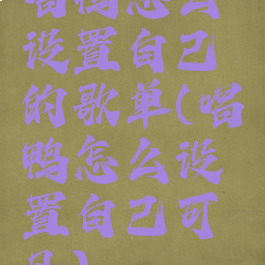 唱鸭怎么
设置自己
的歌单(唱
鸭怎么设
置自己可
见)